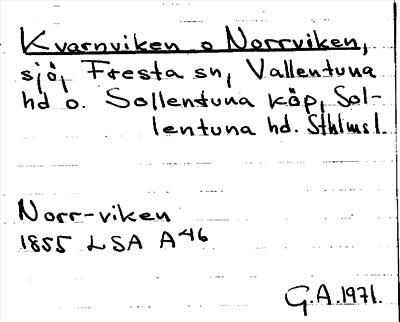 Kvarnviken o Norrviken,
sjö, Fresta sn, Vallentuna
hd o. Sollentuna köp, Sol-
lentuna hd. Sthlms l.
Norr-viken
1855 LSA A46
G.A. 1971.